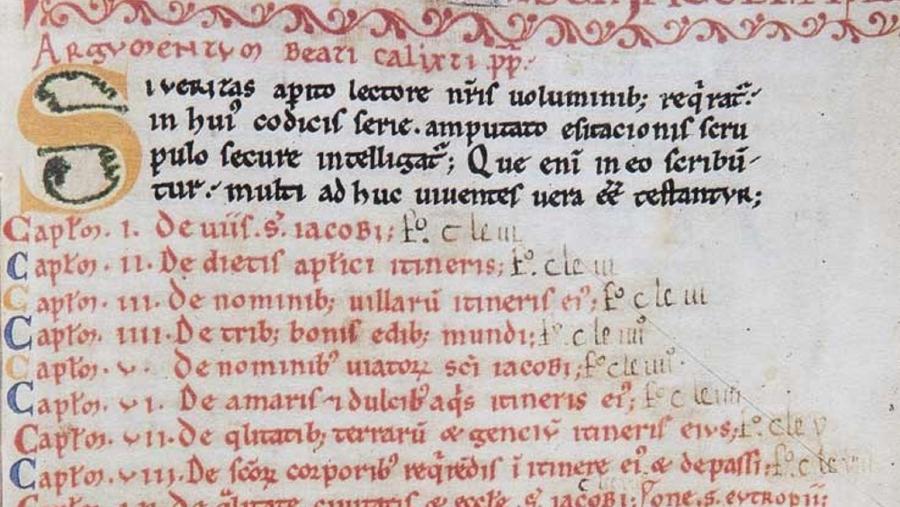 Argumentum Beati Calixti pp̄.
Si veritas a perito lectore nr̄is voluminib; reqͥrat᷑:
in huiꝰ codicis serie. amputato esitacionis scru
pulo secure intelligat᷑; Que enī in eo scribū
tur: multi ad huc viventes vera eē̄ testantur;
Capłm. I. De viis. s̄. iacobi; fo. c le iii
Capłm. II. De dietis apłici itineris; fo. c le iii
Capłm. III. De nominib; villarū itineris eiꝰ; fo c le iii
Capłm. IIII. De trib; bonis edib; mundi; fo. c le iiii
Capłm. V. De nominibꝰ viatoꝝ sc̄i iacobi; fo c le iiii
Capłm. VI. De amaris ⁊ dulcibꝰ aq̄s itineris eiꝰ; fo c le iiii
Capłm. VII. De qͣlitatib; terrarū & genciū itineris eius; fo. c le v
Capłm. VIII. De sc̄oꝝ corporibꝰ reqͥrēdis ī itinere eiꝰ & de passi; fo. c le
Capłm. De qͣlitate civitatis & eccłe. s̄. iacobi; s. eutropii;